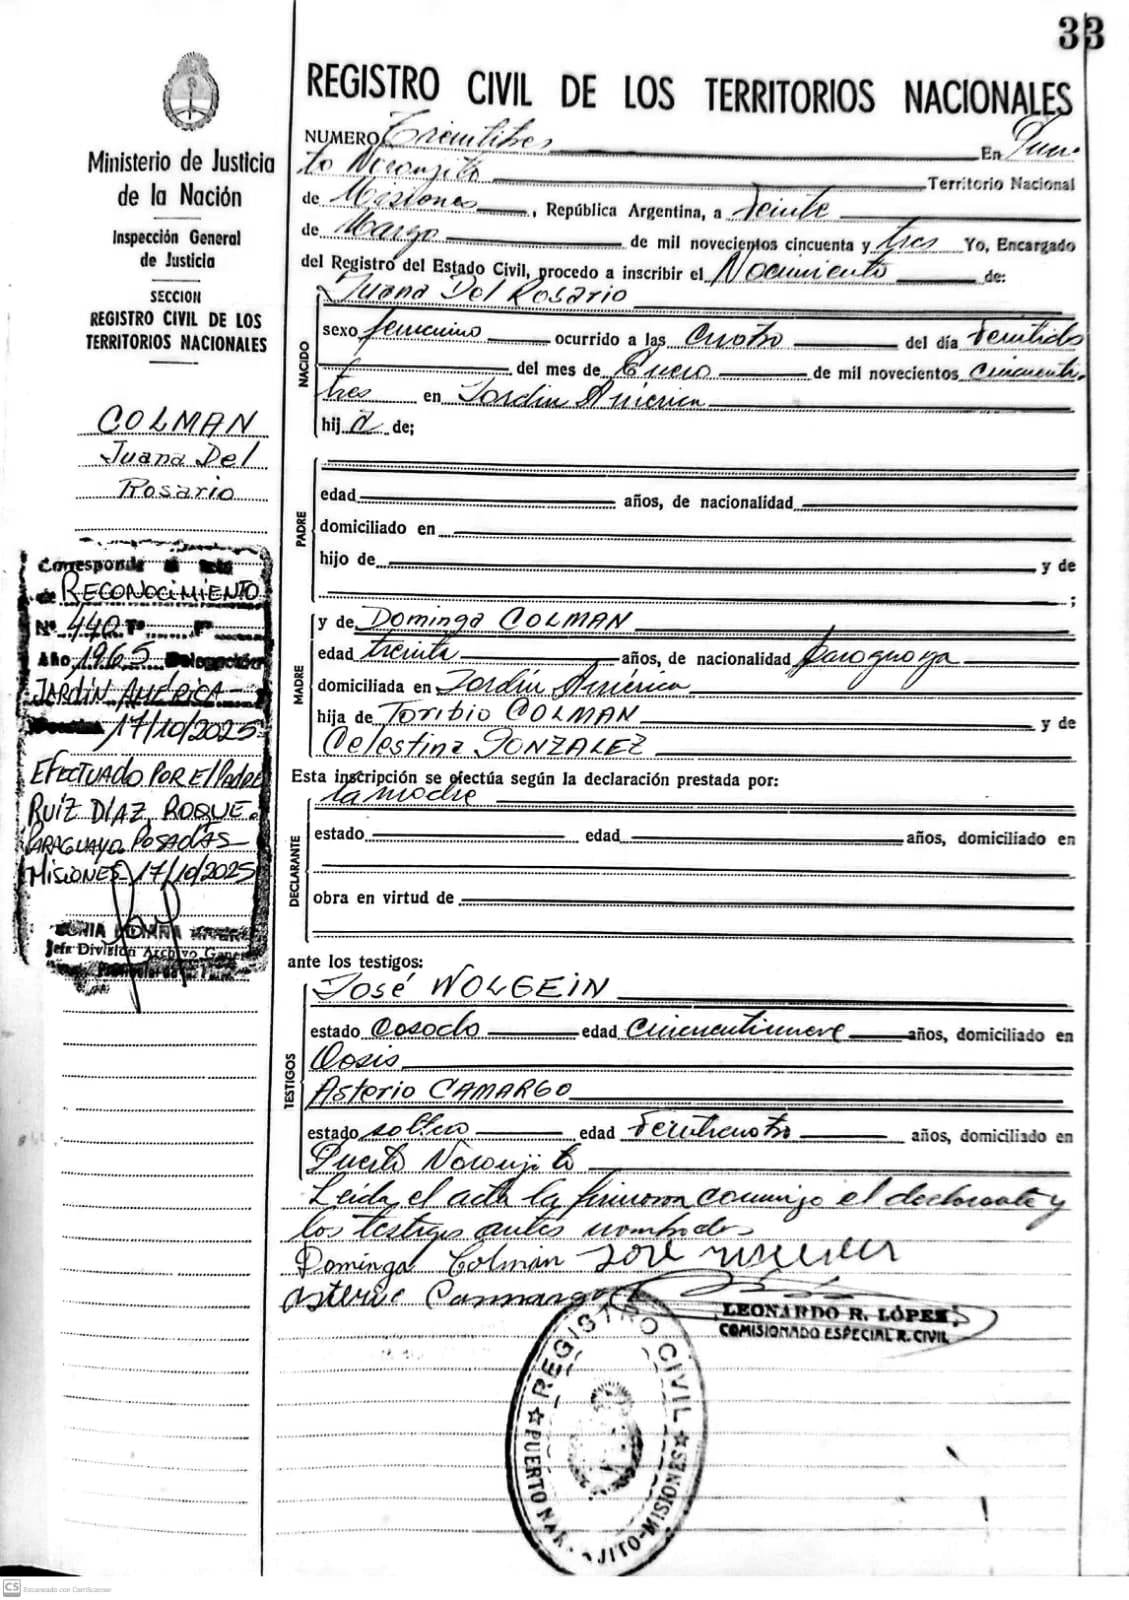 33
REGISTRO CIVIL DE LOS TERRITORIOS NACIONALES
Ministerio de Justicia
de la Nación
Inspección General
de Justicia
SECCION
REGISTRO CIVIL DE LOS
TERRITORIOS NACIONALES
COLMAN
Juana Del
Rosario
Corresponde
de RECONOCIMIENTO
Nº 440 Tº Fº
Año 1965 Delegación
JARDÍN AMÉRICA
17/10/2025
EFECTUADO POR El Padre
RUÍZ DÍAZ, ROQUE.
PARAGUAYO. POSADAS
MISIONES 17/10/2025
Jefa División Archivo
NUMERO Treintitres En Puer
to Naranjito Territorio Nacional
de Misiones, República Argentina, a veinte
de Marzo de mil novecientos cincuenta y tres Yo, Encargado
del Registro del Estado Civil, procedo a inscribir el Nacimiento de:
NACIDO
Juana Del Rosario
sexo femenino ocurrido a las cuatro del día veintidos
del mes de Enero de mil novecientos cincuenti
tres en Jardín América
hij a de;
PADRE
edad años, de nacionalidad
domiciliado en
hijo de y de
;
MADRE
y de Dominga COLMAN
edad treinta años, de nacionalidad paraguaya
domiciliada en Jardín América
hija de Toribio COLMAN y de
Celestina GONZALEZ
Esta inscripción se efectúa según la declaración prestada por:
DECLARANTE
la madre
estado edad años, domiciliado en
obra en virtud de
ante los testigos:
TESTIGOS
José WOLGEIN
estado casado edad cincuentinueve años, domiciliado en
Oasis
Asterio CAMARGO
estado soltero edad veinticuatro años, domiciliado en
Puerto Naranjito
Leida el acta la firmaron conmigo el declarante y
los testigos antes nombrados
Dominga Colman José
Asterio Cammargo
LEONARDO R. LÓPEZ
COMISIONADO ESPECIAL R. CIVIL
REGISTRO CIVIL
PUERTO NARANJITO-MISIONES
CS Escaneado con CamScanner